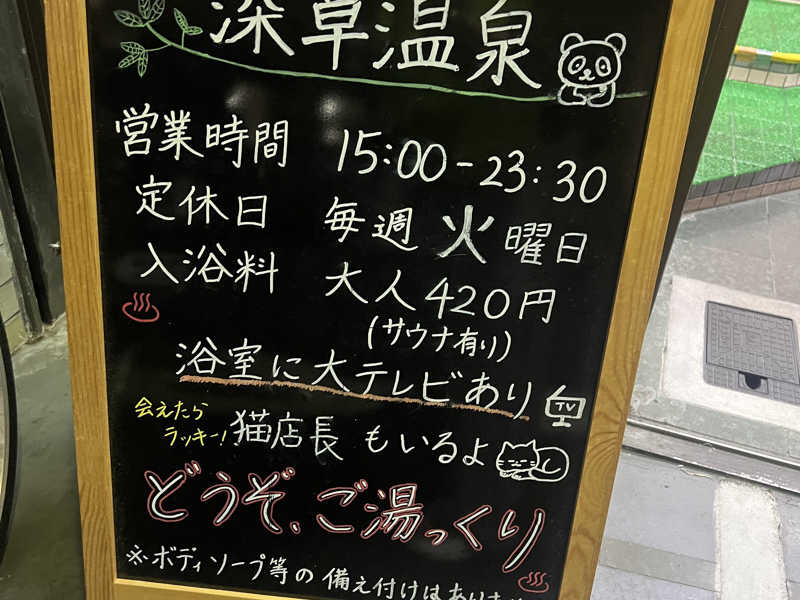 深草温泉
営業時間 15:00-23:30
定休日 毎週火曜日
入浴料 大人420円
(サウナ有り)
浴室に大テレビあり
TV
会えたら
ラッキー!
猫店長もいるよ
どうぞ、ご湯っくり
※ボディソープ等の備え付けはありま